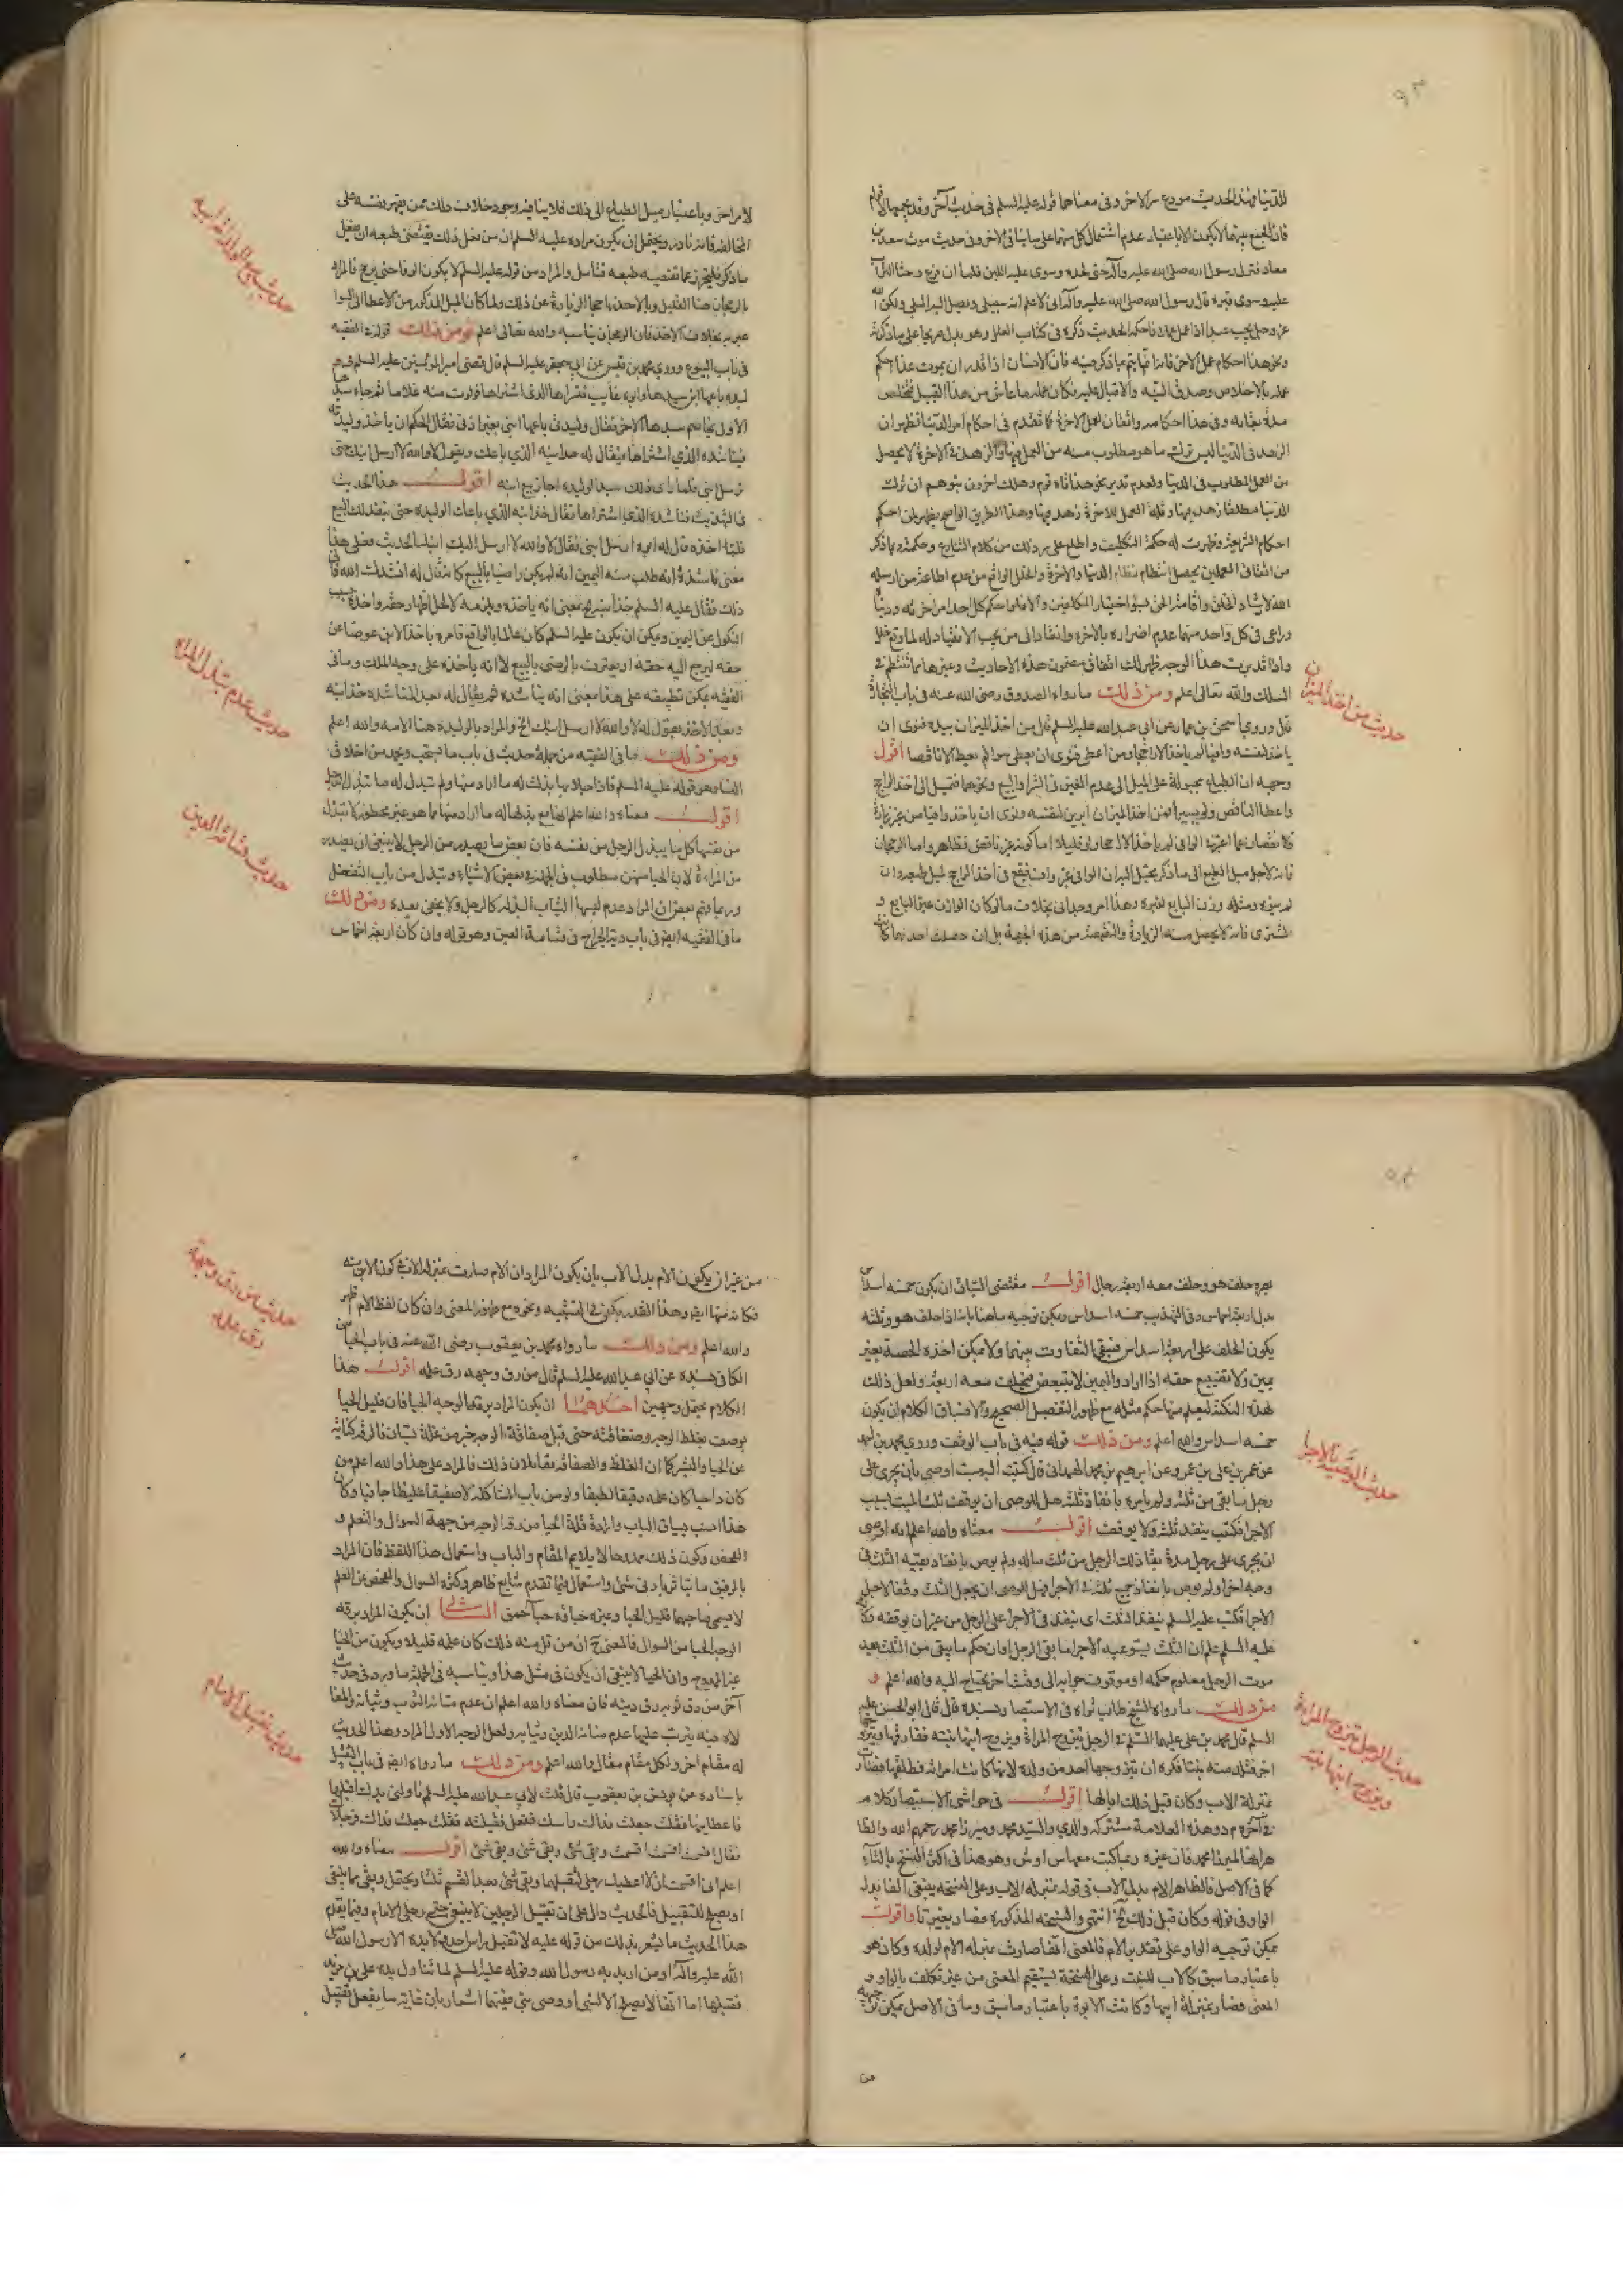 ٩٣
للدنيا فهذا الحديث مودع سر الاخر وفي معناهما قوله عليه السلم في حديث آخر وقد يجمعهما لاقوام
فان الجمع بينهما لا يكون الا باعتبار عدم اشتمال كل منهما على ما ينافي الاخر وفي حديث موت سعد بن
معاد فنزل رسول الله صلى الله عليه وآله حتى لحده وسوى عليه اللبن فلما ان فرغ وحثا التراب
عليه وسوى قبره قال رسول الله صلى الله عليه وآله اني لاعلم انه سيبلى ويصل اليه البلى ولكن الله
عز وجل يحب عبدا اذا عمل عملا فاحكمه الحديث ذكره في كتاب العلل وهو يدل صريحا على ما ذكرته
ونحو هذا احكام عمل الاخرة فانه انما يتم بما ذكر فيه فان الانسان اذا قدر ان يموت غدا احكم
عمله بالاخلاص وصدق النية والاقبال عليه فكان عمله ما عاش من هذا القبيل فتخلص
مدة بقائه وفي هذا احكامه واتقان لعمل الاخرة كما تقدم في احكام امر الدنيا فظهر ان
الزهد في الدنيا ليس ترك ما هو مطلوب منه من العمل فيها والزهد في الاخرة لا يحصل
من العمل المطلوب في الدنيا ولعدم تدبر نحو هذا تاه قوم وهلك اخرون بتوهم ان ترك
الدنيا مطلقا زهد فيها وقلة العمل للاخرة زهد فيها وهذا الطريق الواضح يظهر لمن احكم
احكام الشريعة وظهرت له حكمة التكليف واطلع على سر ذلك من كلام الشارع وحكمته وبما ذكر
من اتفاق العملين يحصل انتظام نظام الدنيا والاخرة والخلل الواقع من عدم اطاعة من ارسله
الله لارشاد الخلق واقامة الحق بسوء اختيار المكلفين والا فلو احكم كل احد امر اخرته ودنياه
وراعى في كل واحد منهما عدم اضراره بالاخر وانقاد الى من يجب الانقياد له لما وقع خلل
واذا تدبرت هذا الوجه ظهر لك اتفاق مضمون هذه الاحاديث وغيرها مما تنتظم في
السلك والله تعالى اعلم ومن ذلك ما رواه الصدوق رضي الله عنه في باب التجارة
قال وروي اسحق بن عمار عن ابي عبد الله عليه السلم قال من اخذ الميزان بيده فنوى ان
ياخذ لنفسه وافيا لم ياخذ الا راجحا ومن اعطى فنوى ان يعطي سواء لم يعط الا ناقصا اقول
وجهه ان الطباع مجبولة على الميل الى عدم الغبن في الشراء والبيع ونحوهما فتميل الى اخذ الراجح
واعطاء الناقص ولو يسيرا فمن اخذ الميزان ليزن لنفسه ونوى ان ياخذ وافيا من غير زيادة
ولا نقصان عما اعتبره الوافي لم ياخذ الا راجحا ولو قليلا اما كونه غير ناقص فظاهر واما الرجحان
فانه لاجل ميل الطبع الى ما ذكر يحتمل الميزان الوافي غير واف فيقع في اخذ الراجح لميل طبعه وان
لم يرده ومثله وزن البايع لغيره وهذا امر وجداني بخلاف ما لو كان الوازن غير البايع و
المشتري فانه لا يحصل منه الزيادة والنقيصة من هذه الجهة بل ان حصلت احدهما كانت
حديث من اخذ الميزان
لامر اخر وباعتبار ميل الطباع الى ذلك فلا ينافيه وجود خلاف ذلك ممن يقهر نفسه على
المخالفة فانه نادر ويحتمل ان يكون مراده عليه السلم ان من فعل ذلك يقتضي طبعه ان يفعل
ما ذكر فليتحرز عما تقتضيه طبعه فتأمل والمراد من قوله عليه السلم لا يكون الوفا حتى يرجح فالمراد
بالرجحان هنا القليل وبالاحذ راجحا الزيادة عن ذلك ولما كان الميل المذكور من الاعطا الى السوا
عبر به بخلاف الاخذ فان الرجحان يناسبه والله تعالى اعلم ومن ذلك قوله في الفقيه
في باب البيوع وروي محمد بن قيس عن ابي جعفر عليه السلم قال قضى امير المؤمنين عليه السلم في
وليدة باعها ابن سيدها وابوه غايب فتسراها الذي اشتراها فولدت منه غلاما ثم جاء سيدها
الاول يخاصم سيدها الاخر فقال وليدتي باعها ابني بغير اذني فقال الحكم ان ياخذ وليدته وابنها
فيناشده الذي اشتراها فيقال له خذ ابنه الذي باعك ويقول لا والله لا ارسل ابنك حتى
ترسل ابني فلما راى ذلك سيد الوليدة اجاز بيع ابنه اقول هذا الحديث
في التهذيب فناشده الذي اشتراها فقال خذ ابنه الذي باعك الوليدة حتى ينفذ لك البيع
فلما اخذه قال له ابوه ارسل ابني فقال لا والله لا ارسل اليك ابنك الحديث فعلى هذا
معنى ناشده انه طلب منه اليمين انه لم يكن راضيا بالبيع كانه قال له انشدك الله في
ذلك فقال عليه السلم خذ ابنه بمعنى انه ياخذه ويلزمه لاجل اظهار حقه واخذه بسبب
النكول عن اليمين ويمكن ان يكون عليه السلم كان عالما بالواقع فامره باخذ الابن عوضا عن
حقه ليرجع اليه حقه او يعترف بالرضى بالبيع لا انه ياخذه على وجه الملك وما في
الفقيه يمكن تطبيقه على هذا بمعنى انه يناشده ثم يقال له بعد المناشدة خذ ابنه
وبعد الاخذ يقول له لا والله لا ارسل ابنك الخ والمراد بالوليدة هنا الامة والله اعلم
ومن ذلك ما في الفقيه من جملة حديث في باب ما يستحب ويحمد من اخلاق
النساء وهو قوله عليه السلم فاذا خلا بها بذلت له ما اراد منها ولم تبذل له ما تبذل الرجل
اقول معناه والله اعلم انها مع بذلها له ما اراد منها مما هو غير محظور لا تبذل
من نفسها كل ما يبذل الرجل من نفسه فان بعض ما يصدر من الرجل لا ينبغي ان يصدر
من المراة لان الحيا منهن مطلوب في الجملة وبعض الاشياء وتبذل من باب التفعل
وربما توهم بعض ان المراد عدم لبسها الثياب البذلة كالرجل ولا يخفى بعده ومن ذلك
ما في الفقيه ايضا في باب دية الجراح في قسامة العين وهو قوله وان كان اربعة اخماس
حديث عدم تبذل المراة
حديث قسامة العين
٩٤
بصره حلف هو وحلف معه اربعة رجال اقول مقتضى السياق ان يكون خمسة اسداس
بدل اربعة اخماس وفي التهذيب خمسة اسداس ويمكن توجيه ما هنا بانه اذا حلف هو وثلثة
يكون الحلف على اربعة اسداس فيبقى التفاوت بينهما ولا يمكن اخذه الحصة بغير
يمين ولا تضييع حقه اذا اراد واليمين لا يتبعض فيحلف معه اربعة ولعل ذلك
لهذه النكتة ليعلم منها حكم مثله مع ظهور التفصيل الصحيح والا فسياق الكلام ان يكون
خمسة اسداس والله اعلم ومن ذلك قوله فيه في باب الوقف وروي محمد بن احمد
عن عمر بن علي بن عمر وعن ابرهيم بن محمد الهمداني قال كتبت اليه ميت اوصى بان يجرى على
رجل ما بقي من ثلثه ولم يامر بانفاذ ثلثه هل للوصي ان يوقف ثلث الميت بسبب
الاجرا فكتب ينفذ ثلثه ولا يوقف اقول معناه والله اعلم انه اوصى
ان يجرى على رجل مدة بقا ذلك الرجل من ثلث ماله ولم يوص بانفاد بقية الثلث في
وجه اخر او لم يوص بانفاذ جميع ثلثه في الاجرا فهل للوصي ان يجعل الثلث وقفا لاجل
الاجرا فكتب عليه السلم ينفذ الثلث اى ينفذ في الاجرا على الرجل من غير ان يوقفه وكانه
عليه السلم علم ان الثلث يستوعبه الاجرا ما بقي الرجل او ان حكم ما يبقى من الثلث بعد
موت الرجل معلوم حكمه او موقوف جوابه الى وقت اخر يحتاج اليه والله اعلم و
من ذلك ما رواه الشيخ طاب ثراه في الاستبصار بسنده قال قال ابو الحسن عليه
السلم قال محمد بن علي عليهما السلم في الرجل يتزوج المراة ويزوج ابنها ابنته فيفارقها ويتزوجها
اخر فتلد منه بنتا فكره ان يتزوجها احد من ولده لانها كانت امراته فطلقها فصارت
بمنزلة الاب وكان قبل ذلك ابا لها اقول في حواشي الاستبصار كلام
في آخره م د وهذه العلامة مشتركة والدي والسيد محمد وميرزا محمد رحمهم الله والظا
هر انها لميرزا محمد فان غيره ربما كتب معها س او ش وهو هذا في اكثر النسخ بالتاء
كما في الاصل فالظاهر الام بدل الاب في قوله بمنزلة الاب وعلى النسخة ينبغي الفا بدل
الواو في قوله وكان قبل ذلك الخ انتهى والنسخة المذكورة فصار بغير تاء واقول
يمكن توجيه الواو على تقدير الام فالمعنى انها صارت بمنزلة الام لولده وكان هو
باعتبار ما سبق كالاب للبنت وعلى النسخة يستقيم المعنى من غير تكلف بالواو و
المعنى فصار بمنزلة ابيها وكانت الابوة باعتبار ما سبق وما في الاصل يمكن توجيهه
من
حديث الوصية بالاجرا
حديث الرجل يتزوج المراة
ويزوج ابنها ابنته
من غير ان يكون الام بدل الاب بان يكون المراد ان الام صارت بمنزلة الاب في كون الابن منه
فكانه منها ايضا وهذا القدر يكفي في التشبيه ونحوه مع ظهور المعنى وان كان لفظ الام اظهر
والله اعلم ومن ذلك ما رواه محمد بن يعقوب رضي الله عنه في باب الحيا من
الكافي بسنده عن ابي عبد الله عليه السلم قال من رق وجهه رق علمه اقول هذا
الكلام يحتمل وجهين احدهما ان يكون المراد برقة الوجه الحيا فان قليل الحيا
يوصف بغلظ الوجه وصفاقته حتى قيل صفاقة الوجه خير من غلة بستان فالرقة كناية
عن الحيا والستر كما ان الغلظ والصفاقة يقابلان ذلك فالمراد على هذا والله اعلم من
كان ذا حيا كان علمه رقيقا لطيفا ولو من باب المشاكلة لا صفيقا غليظا جافيا وكان
هذا انسب بسياق الباب وارادة قلة الحيا من رقة الوجه من جهة السؤال والتعلم و
الفحص وكون ذلك ممدوحا لا يلايم المقام والباب واستعمال هذا اللفظ فان المراد
بالرقيق ما يتاثر بادنى شئ واستعماله فيما تقدم شايع ظاهر وكثرة السؤال والفحص عن العلم
لا يسمى صاحبهما قليل الحيا وغيره حياؤه حيا احمق الثاني ان يكون المراد برقة
الوجه الحيا من السؤال فالمعنى ح ان من قل منه ذلك كان علمه قليلا ويكون من الحيا
غير الممدوح وان الحيا لا ينبغي ان يكون في مثل هذا ويناسبه في الجملة ما ورد في حديث
آخر من رق ثوبه رق دينه فان معناه والله اعلم ان عدم متانة الثوب وثباته والمغا
لاة فيه يترتب عليها عدم متانة الدين وثباته ولعل الوجه الاول المراد وهذا الحديث
له مقام اخر ولكل مقام مقال والله اعلم ومن ذلك ما رواه ايضا في باب التقبيل
باسناده عن يونس بن يعقوب قال قلت لابي عبد الله عليه السلم ناولني يدك اقبلها
فاعطانيها فقلت جعلت فداك راسك ففعل فقبلته فقلت جعلت فداك رجلاك
فقال اقسمت اقسمت اقسمت وبقي شئ وبقي شئ وبقي شئ اقول معناه والله
اعلم اني اقسمت ان لا اعطيك رجلي لتقبلهما وبقي شئ بعد القسم ثلثا ويحتمل وبقي مما ينبغي
او يصلح للتقبيل فالحديث دال على ان تقبيل الرجلين لا ينبغي حتى رجلي الامام وفيما يقدم
هذا الحديث ما يشعر بذلك من قوله عليه لا تقبل راس احد ولا يده الا رسول الله صلى
الله عليه وآله او من اريد به رسول الله وقوله عليه السلم لما تناول يده علي بن مزيد
فقبلها اما انها لا تصلح الا لنبي او وصي نبي ففيهما اشعار بان غاية ما يفعل تقبيل
حديث من رق وجهه
رق علمه
حديث تقبيل الامام